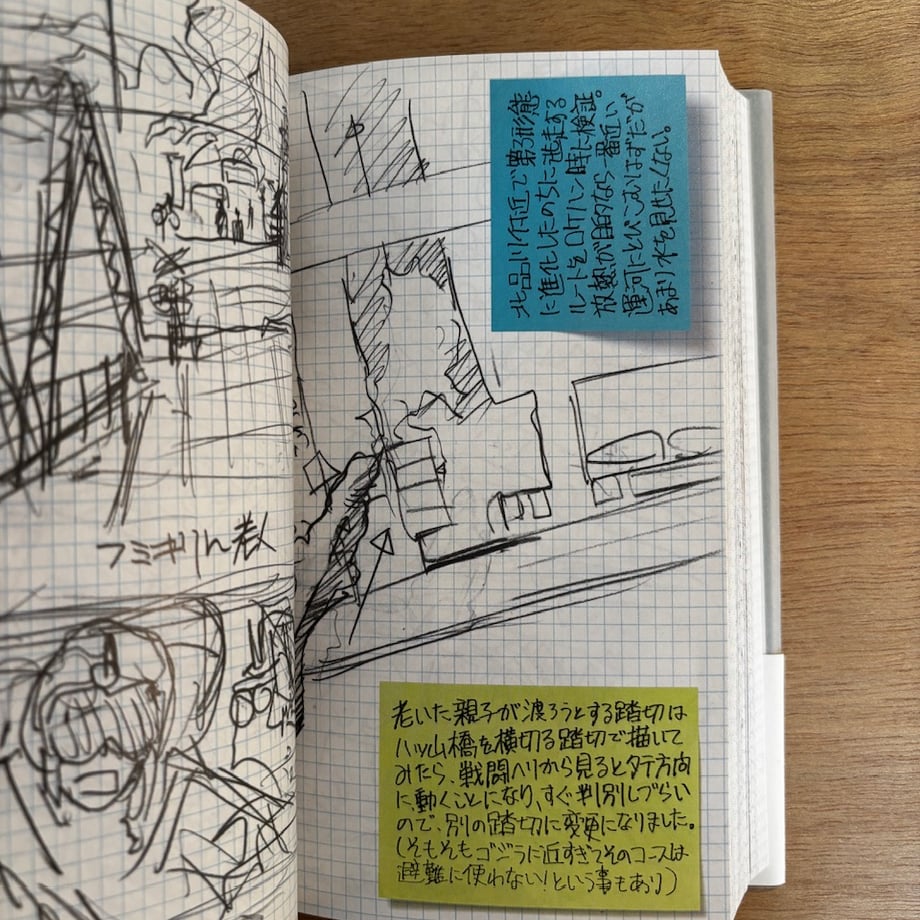 フミキリ 老人
北品川付近で第3形態
に進化したのちに逃走する
ルートをロケハン時に検証。
放熱が目的なら一番近い
運河にとびこむはずだが
あまり水を見せたくない。
老いた親子が渡ろうとする踏切は
八ッ山橋を横切る踏切で描いて
みたら、戦闘ヘリから見るとタテ方向
に動くことになり、すぐ判別しづらい
ので、別の踏切に変更になりました。
(そもそもゴジラに近すぎてそのコースは
避難に使わない!という事もあり)